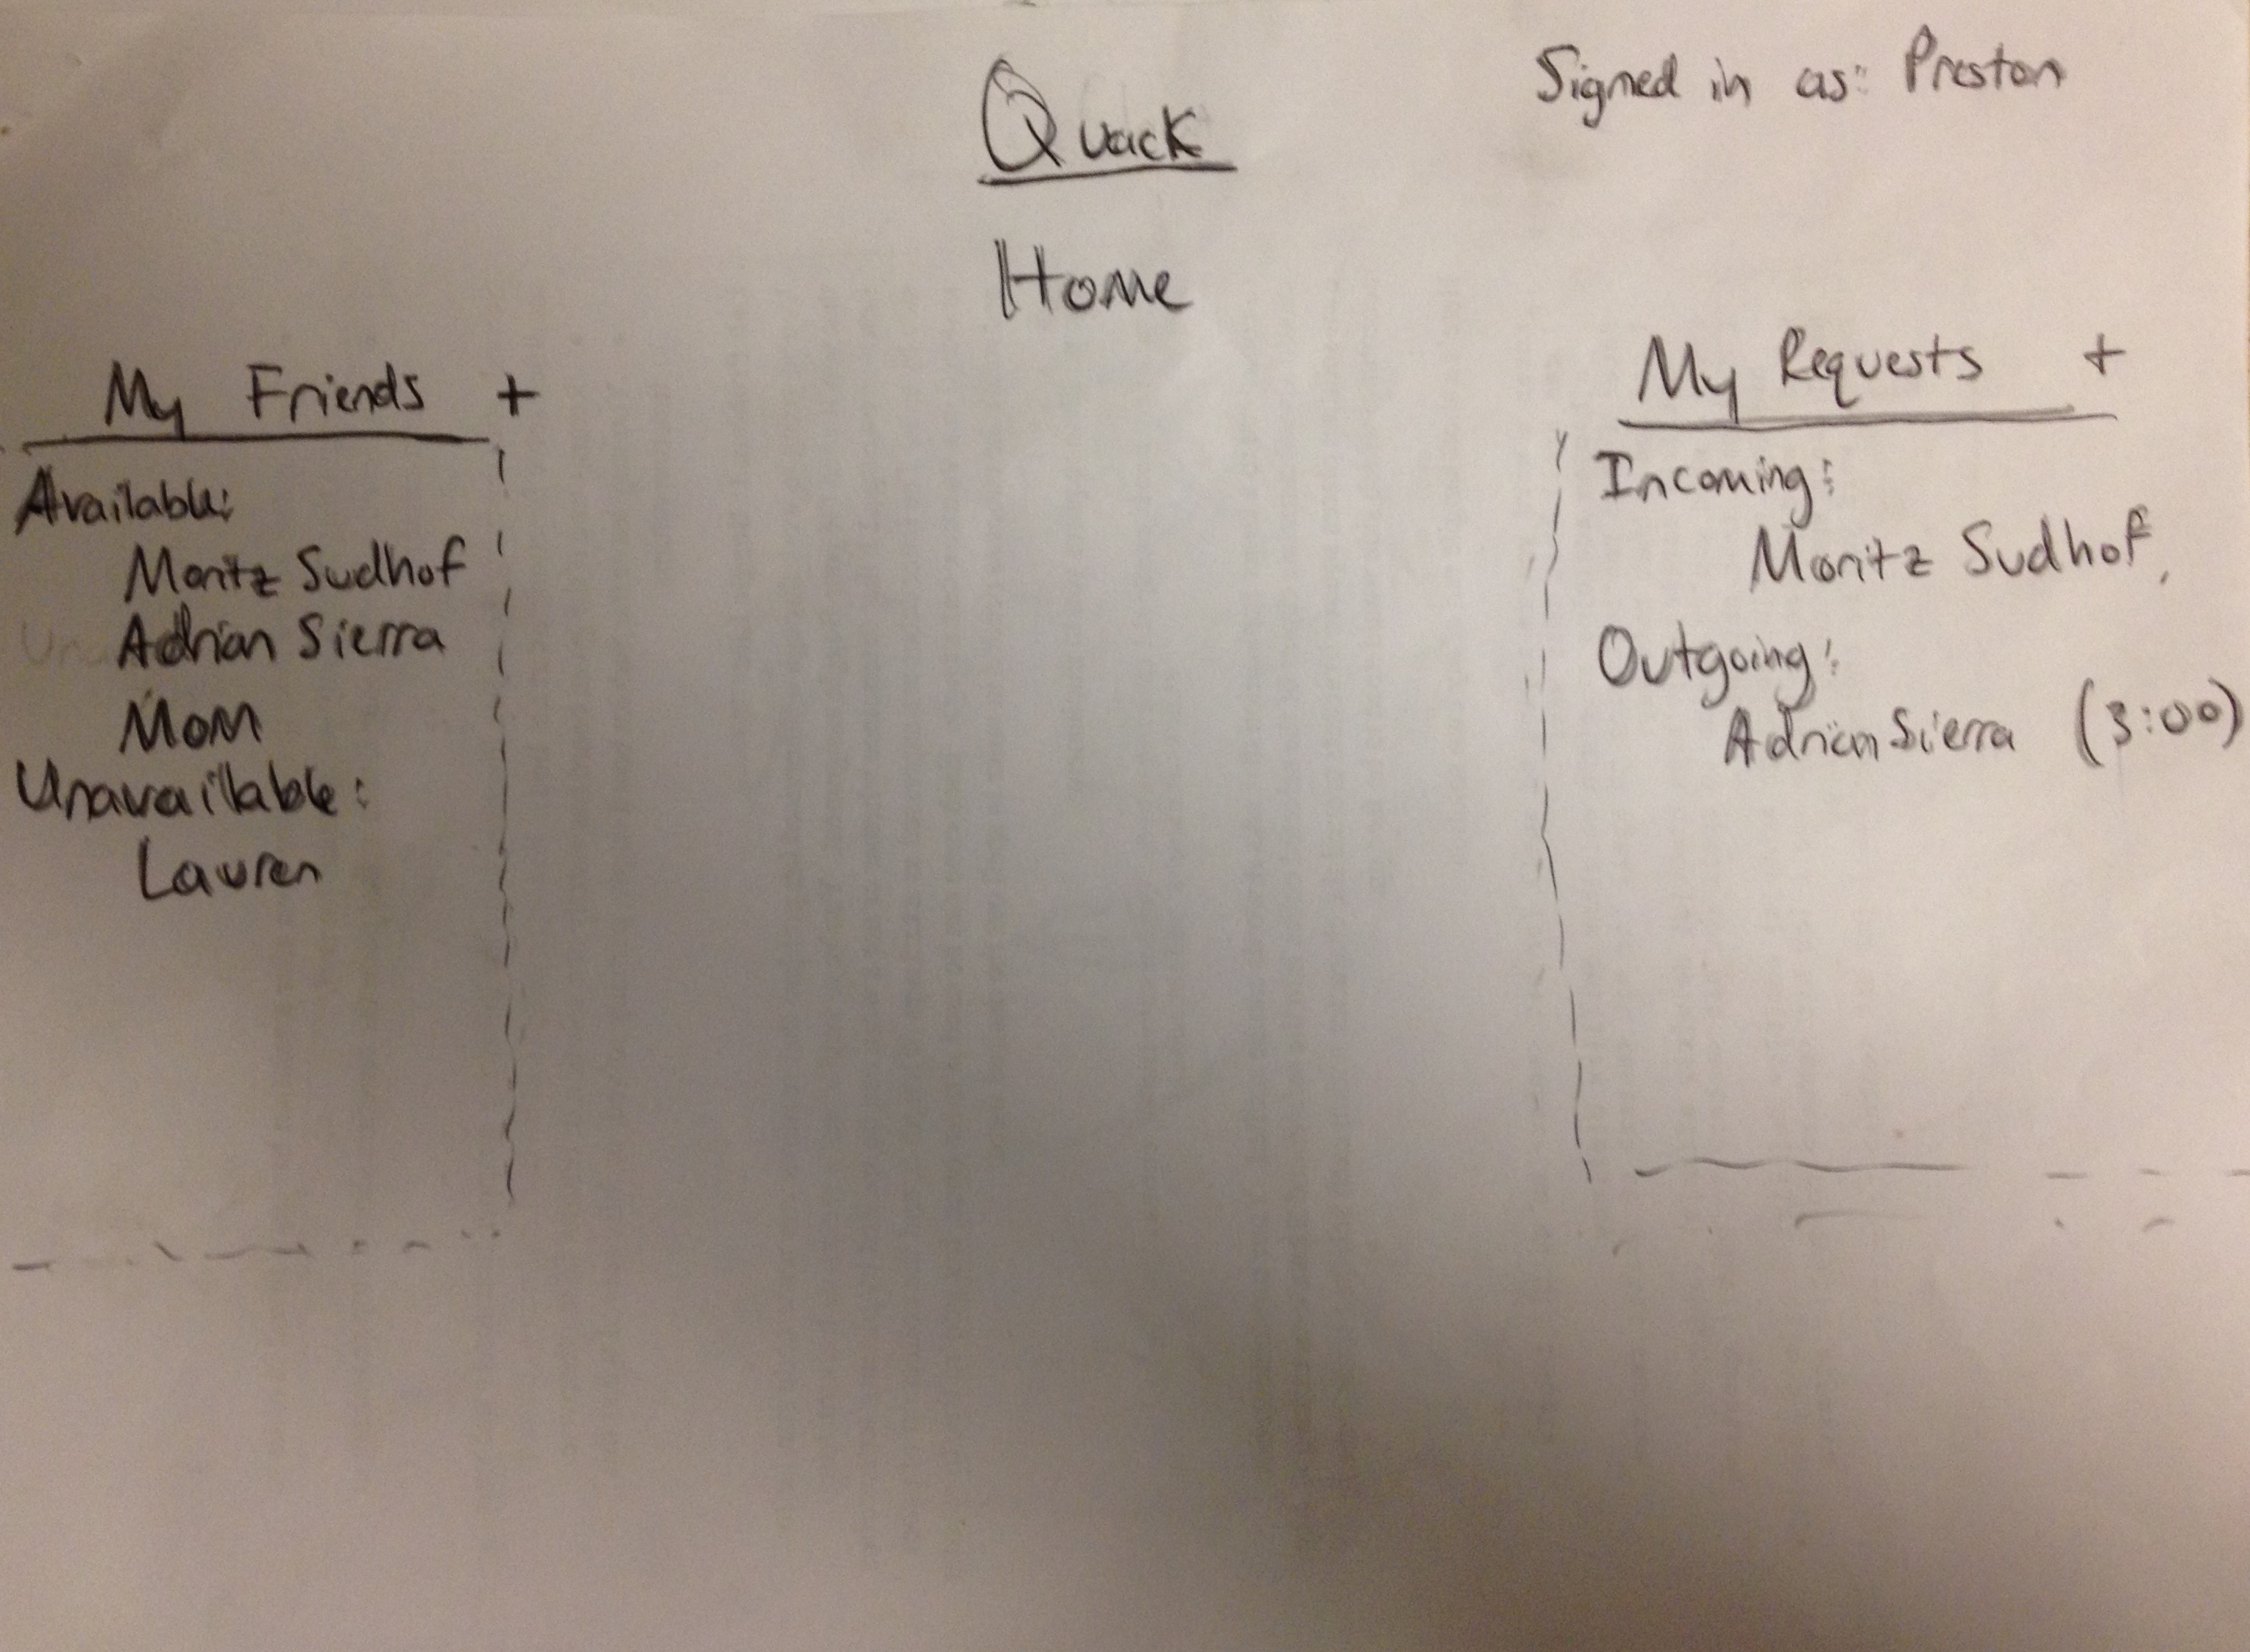 Signed in as: Preston
Quack
Home
My Friends +
Available:
Moritz Sudhof
Adrian Sierra
Mom
Unavailable:
Lauren
My Requests +
Incoming:
Moritz Sudhof
Outgoing:
Adrian Sierra (3:00)